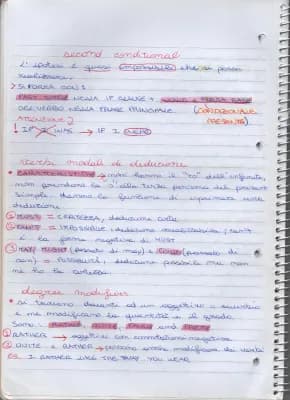 second conditional
L'ipotesi è quasi impossibile che si possa
realizzare.
> SI FORMA CON:
PAST SIMPLE NELLA IF CLAUSE + WOULD E FORMA BASE
DEL VERBO NELLA FRASE PRINCIPALE (CONDIZIONALE
PRESENTE)
! IF I WAS → IF I WERE
verbi modali di deduzione
• CARATTERISTICHE → non hanno il "to" dell'infinito,
non prendono la s alla terza persona del present
simple, hanno la funzione di esprimere una
deduzione
① MUST = CERTEZZA, deduzione certa
② CAN'T = IMPOSSIBILE, deduzione
è la forma negativa di MUST
③ MAY, MIGHT (passato di may) e COULD (passato di
can) = POSSIBILITÀ, deduzione possibile ma non
ne ho la certezza
degree modifiers
• si trovano davanti ad un aggettivo o avverbio
e ne modificano la quantità e il grado.
Sono: RATHER, QUITE, FAIRLY and PRETTY
① RATHER → aggettivi con connotazione negativa
② QUITE e RATHER → possono anche modificare dei verbi
ES. I RATHER LIKE THE WAY YOU WEAR